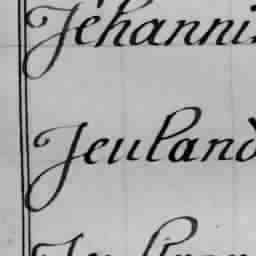 Jéhanni
Jeuland